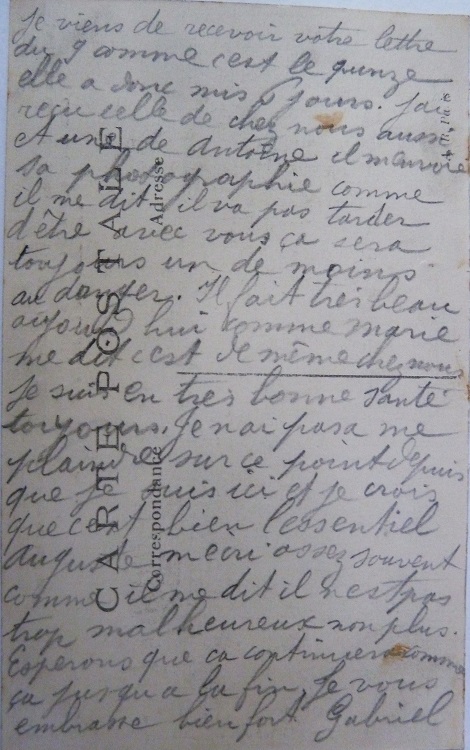 Je viens de recevoir votre lettre
du 9 comme c'est le qunze
elle a donc mis 6 jours. J'ai
reçu celle de chez nous aussi
et une de Antoine il m'envoie
sa photographie comme
il me dit il va pas tarder
d'être avec vous ça sera
toujours un de moins
au danger. Il fait très beau
aujourd hui comme Marie
me dit c'est de même chez nous
Je suis en très bonne santé
toujours. Je n'ai pas a me
plaindre sur ce point depuis
que je suis ici et je crois
que c'est bien l'essentiel
Auguste m'ecri assez souvent
comme il me dit il n'est pas
trop malheureux non plus.
Esperons que ca continuera comme
ça jusqu a la fin, Je vous
embrasse bien fort Gabriel
CARTE POSTALE
Correspondance
Adresse
Paris